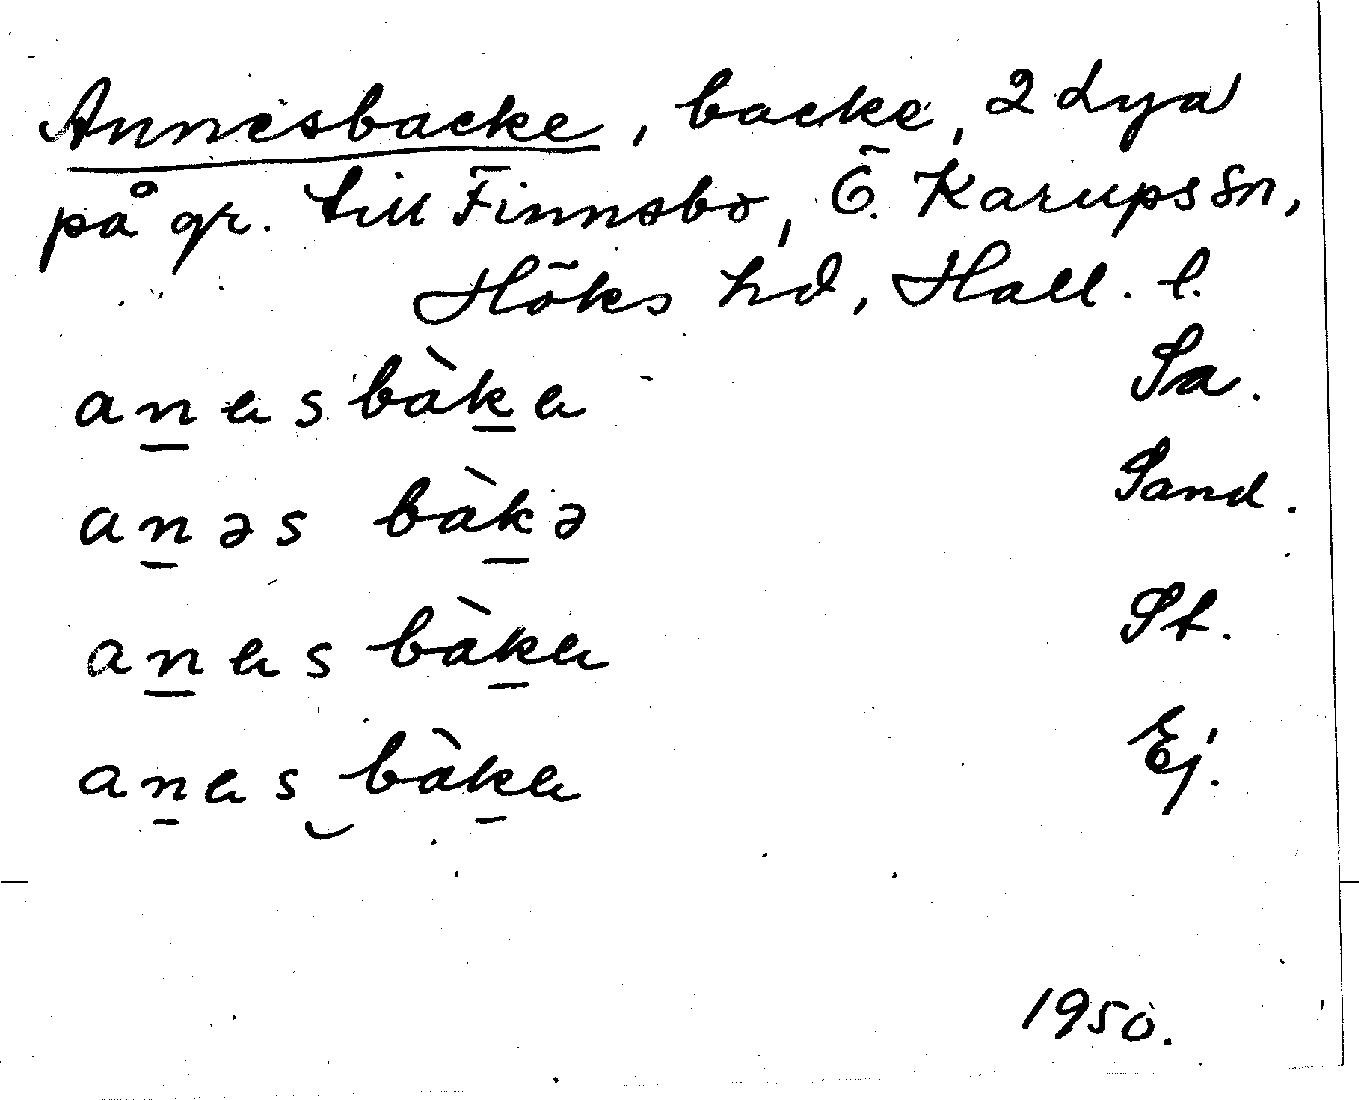 Annesbacke, backe, 2 dya
på gr. till Finnsbo, Ö. Karups sn,
Höks hd, Hall. l.
anasbàka Sa.
anəs bàkə Sand.
anas bàka St.
anas‿bàka Ej.
1950.